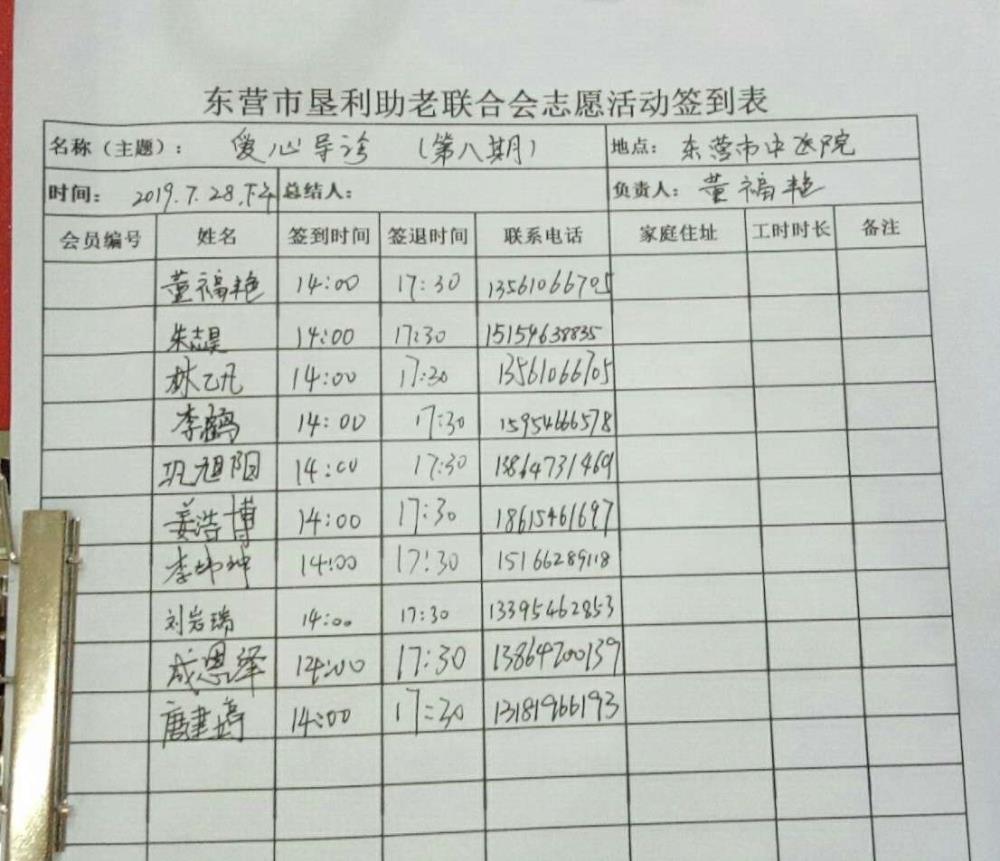 东营市垦利助老联合会志愿活动签到表
名称（主题）： 爱心导诊 （第八期） 地点： 东营市中医院
时间： 2019.7.28.下午 总结人： 负责人： 董福艳
会员编号 姓名 签到时间 签退时间 联系电话 家庭住址 工时时长 备注
董福艳 14:00 17:30 13561066705
朱志昊 14:00 17:30 15154638835
林乙凡 14:00 17:30 13561066705
李鹤 14:00 17:30 15954666578
巩旭阳 14:00 17:30 13864731469
姜浩博 14:00 17:30 18615461697
李坤坤 14:00 17:30 15166289118
刘岩瑞 14:00 17:30 13395462853
成恩泽 14:00 17:30 13864200139
唐建婷 14:00 17:30 13181966193